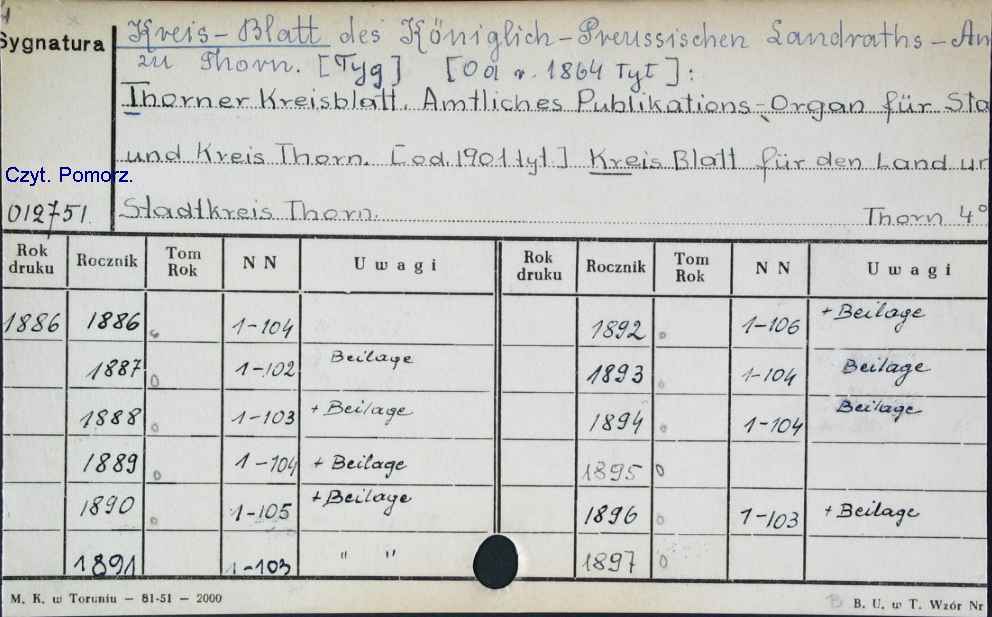 Sygnatura
Kreis-Blatt des Königlich-Preussischen Landraths-Am
zu Thorn. [Tyg] [Od r. 1864 Tyt]:
Thorner Kreisblatt. Amtliches Publikations-Organ für Sta
und Kreis Thorn. [od.1901 tyt.] Kreis Blatt für den Land un
Czyt. Pomorz.
012751 Stadtkreis Thorn. Thorn 4°
Rok druku Rocznik Tom Rok NN Uwagi Rok druku Rocznik Tom Rok NN Uwagi
1886 1886 1-104 1892 1-106 + Beilage
1887 1-102 Beilage 1893 1-104 Beilage
1888 1-103 + Beilage 1894 1-104 Beilage
1889 1-104 + Beilage 1895
1890 1-105 + Beilage 1896 1-103 + Beilage
1891 1-103 " " 1897
M. K. w Toruniu — 81-51 — 2000 B. U. w T. Wzór Nr